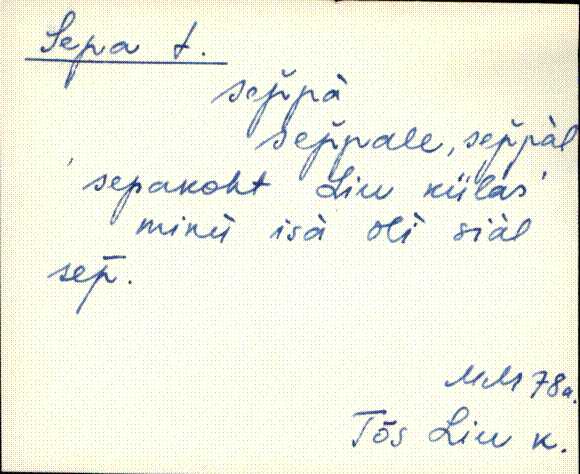 Sepa t.
sep̆pà
sep̆pale, sep̆pàl
'sepakoht Liu külas'
minù isà olì siàl
sep̄.
MM 78a.
Tõs Liu k.